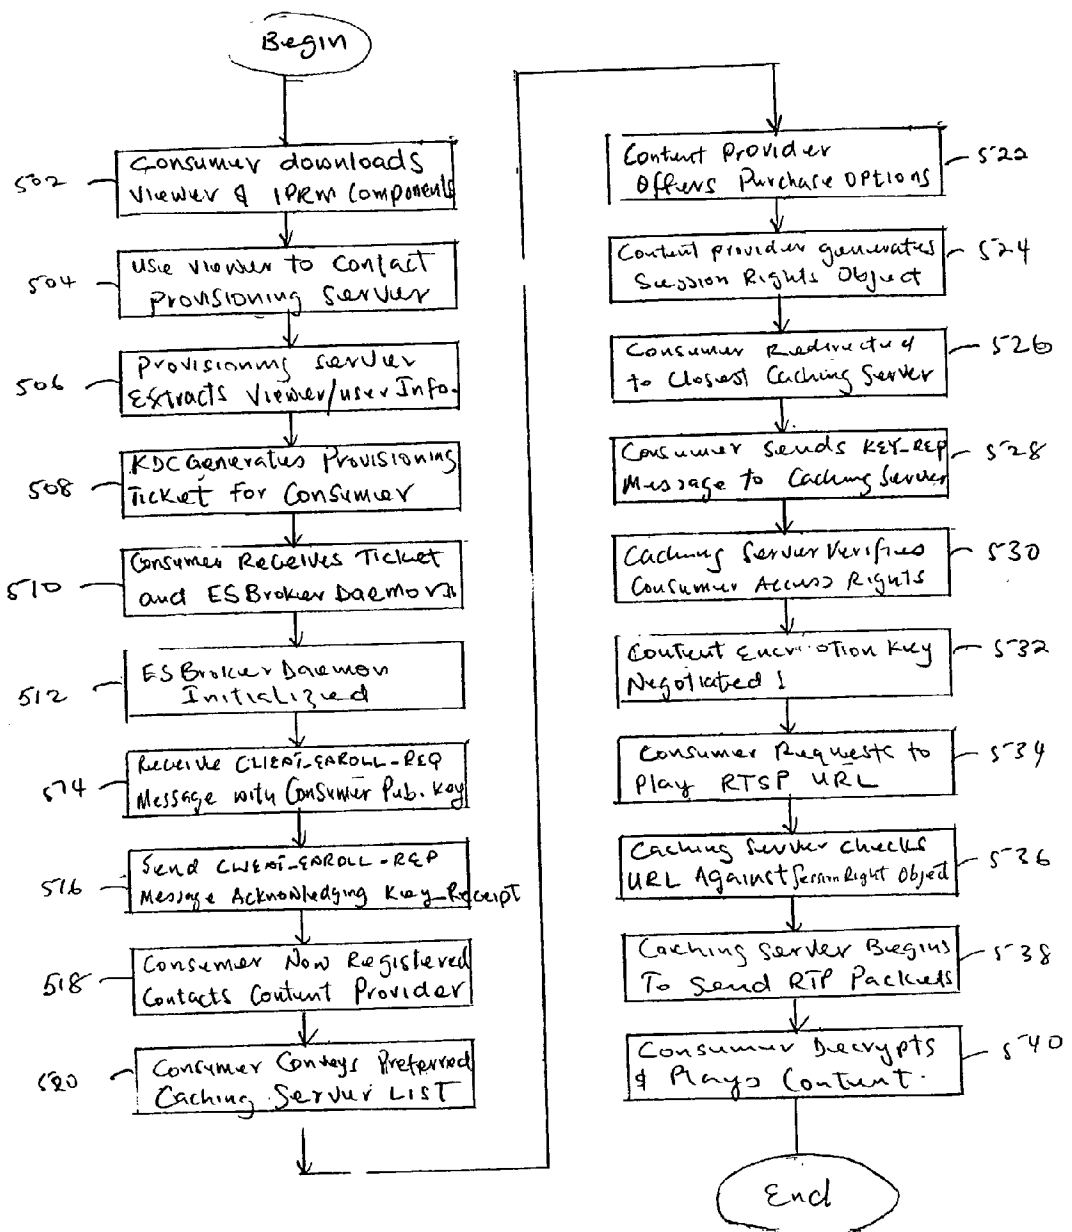 Begin
502
Consumer downloads
Viewer & IPRM Components
504
Use viewer to Contact
Provisioning Server
506
Provisioning Server
Extracts Viewer/User Info.
508
KDC Generates Provisioning
Ticket For Consumer
510
Consumer Receives Ticket
and ESBroker Daemon
512
ESBroker Daemon
Initialized
514
Receive CLIENT_ENROLL_REQ
Message with Consumer Pub. Key
516
Send CLIENT_ENROLL_REP
Message Acknowledging Key_Receipt
518
Consumer Now Registered
Contacts Content Provider
520
Consumer Conveys Preferred
Caching Server LIST
Content Provider
Offers Purchase Options
522
Content provider generates
Session Rights Object
524
Consumer Redirected
to Closest Caching Server
526
Consumer Sends KEY_REP
Message to Caching Server
528
Caching Server Verifies
Consumer Access Rights
530
Content Encryption Key
Negotiated
532
Consumer Requests to
Play RTSP URL
534
Caching Server checks
URL Against Session Right Object
536
Caching Server Begins
To Send RTP Packets
538
Consumer Decrypts
& Plays Content.
540
End